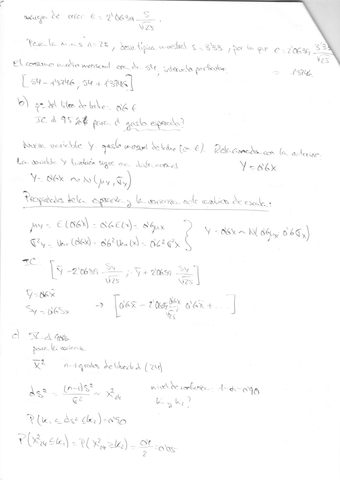 margen de error ε = 2'0639 S/√25
Para la n = 25, S = 3'33, por lo que ε = 2'0639 3'33/√25 = 1'3746
El consumo medio mensual era de 54,
[54 - 1'3746, 54 + 1'3746]
b) del litro de leche: 0'6 €
IC al 95% para el gasto esperado?
Nueva variable Y gasto mensual de leche (en €). Relacionada con la anterior Y = 0'6X
La variable Y también sigue una dist. normal
Y = 0'6X ~ N(μy, σy)
Propiedades de la esperanza y la varianza ante cambios de escala:
μy = E(0'6X) = 0'6 E(X) = 0'6 μx
σ²y = Var(0'6X) = 0'6² Var(X) = 0'6² σ²x
Y = 0'6X ~ N(0'6μx, 0'6σx)
IC [Ȳ - 2'0639 Sy/√25 ; Ȳ + 2'0639 Sy/√25]
Ȳ = 0'6X̄
Sy = 0'6Sx → [0'6X̄ - 2'0639 0'6Sx/√25 ; 0'6X̄ + ...]
c) IC al 90%
para la varianza
n-1 grados de libertad (24)
dS² = (n-1)S²/σ² ~ X²24
nivel de confianza 1-α = 0'90
k1 y k2?
P(k1 ≤ dS² ≤ k2) = 0'90
P(X²24 ≤ k1) = P(X²24 ≥ k2) = α/2 = 0'05